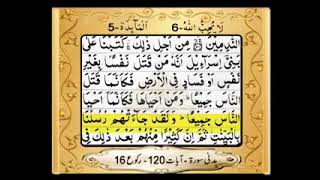 لَا يُحِبُّ اللهُ-6 اَلْمَآئِدَة-5
النّٰدِمِیْنَ ۞ مِنْ اَجْلِ ذٰلِكَ ۛ كَتَبْنَا عَلٰی
بَنِیْۤ اِسْرَآءِیْلَ اَنَّهٗ مَنْ قَتَلَ نَفْسًۢا بِغَیْرِ
نَفْسٍ اَوْ فَسَادٍ فِی الْاَرْضِ فَكَاَنَّمَا قَتَلَ
النَّاسَ جَمِیْعًا ؕ وَ مَنْ اَحْیَاهَا فَكَاَنَّمَاۤ اَحْیَا
النَّاسَ جَمِیْعًا ؕ وَ لَقَدْ جَآءَتْهُمْ رُسُلُنَا
بِالْبَیِّنٰتِ ؗ ثُمَّ اِنَّ كَثِیْرًا مِّنْهُمْ بَعْدَ ذٰلِكَ فِی
مدنی سورة - آیات 120 - رکوع 16